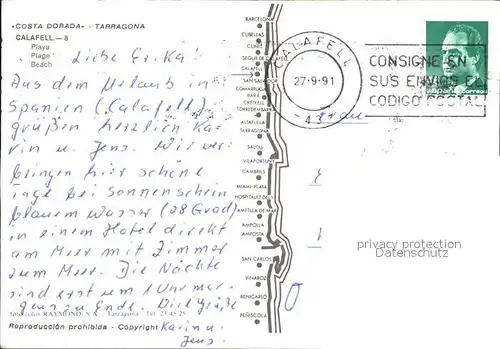 «COSTA DORADA» - TARRAGONA
CALAFELL.—8
Playa
Plage
Beach
Liebe Erika!
Aus dem Urlaub in
Spanien (Calafell)
grüßen herzlich Ka-
rin u. Jens. Wir ver-
bringen hier schöne
Tage bei Sonnenschein
blauem Wasser (28 Grad)
in einem Hotel direkt
am Meer mit Zimmer
zum Meer. Die Nächte
sind erst um 1 Uhr mor-
gens zu Ende. Viel Grüße
Karin u.
Jens.
Fotocolor RAYMOND, Tarragona - Tel. 23.45.25
Reproducción prohibida - Copyright
BARCELONA
CUBELLAS
CUNIT
SEGUR DE CALAFELL
CALAFELL
SAN SALVADOR
COMARRUGA
BARÁ
CREIXELL
TORREDEMBARRA
ALTAFULLA
TARRAGONA
SALOU
VILAFORTUNY
CAMBRILS
MIAMI-PLAYA
HOSPITALET DEL I.
AMETLLA DE MAR
AMPOLLA
AMPOSTA
SAN CARLOS
VINAROZ
BENICARLÓ
PEÑÍSCOLA
CALAFELL
27-9-91
- 43 -
CONSIGNE EN
SUS ENVIOS EL
CODIGO POSTAL
España
correos
Frau
privacy protection
Datenschutz